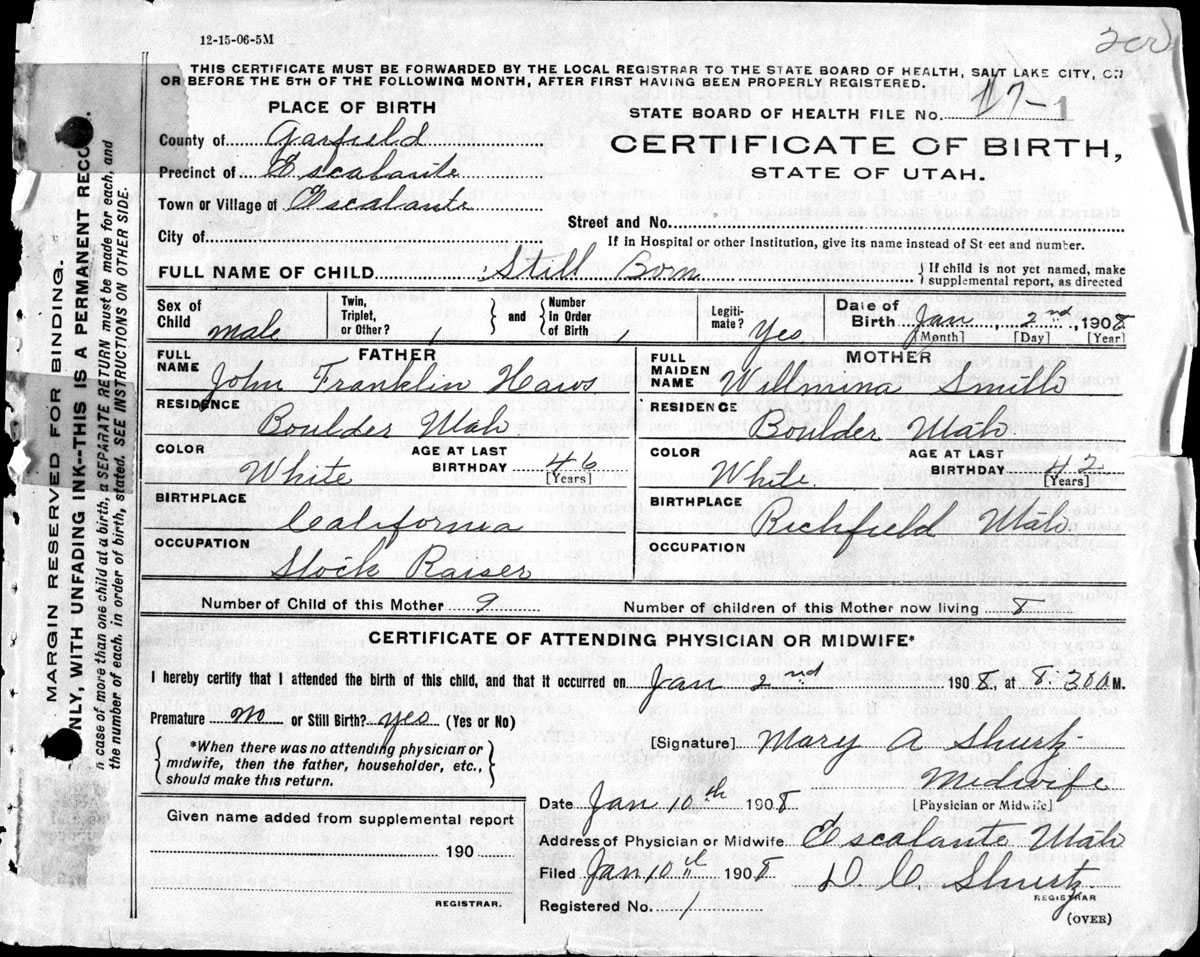 12-15-06-5M
200
THIS CERTIFICATE MUST BE FORWARDED BY THE LOCAL REGISTRAR TO THE STATE BOARD OF HEALTH, SALT LAKE CITY, ON
OR BEFORE THE 5TH OF THE FOLLOWING MONTH, AFTER FIRST HAVING BEEN PROPERLY REGISTERED.
PLACE OF BIRTH
STATE BOARD OF HEALTH FILE No. 17-1
County of Garfield
CERTIFICATE OF BIRTH,
Precinct of Escalante
STATE OF UTAH.
Town or Village of Escalante
Street and No.
City of
If in Hospital or other Institution, give its name instead of St eet and number.
FULL NAME OF CHILD Still Born
If child is not yet named, make
supplemental report, as directed
Sex of Child male
Twin, Triplet, or Other? 1 and Number in Order of Birth 1
Legiti-mate? Yes
Date of Birth Jan 2nd, 1908
[Month] [Day] [Year]
FATHER
FULL NAME John Franklin Haws
RESIDENCE Boulder Utah
COLOR White AGE AT LAST BIRTHDAY 46 [Years]
BIRTHPLACE California
OCCUPATION Stock Raiser
MOTHER
FULL MAIDEN NAME Willmina Smith
RESIDENCE Boulder Utah.
COLOR White. AGE AT LAST BIRTHDAY 42 [Years]
BIRTHPLACE Richfield Utah.
OCCUPATION
Number of Child of this Mother 9 Number of children of this Mother now living 8
CERTIFICATE OF ATTENDING PHYSICIAN OR MIDWIFE*
I hereby certify that I attended the birth of this child, and that it occurred on Jan 2nd 1908, at 8.30 M.
Premature no or Still Birth? yes (Yes or No)
*When there was no attending physician or
midwife, then the father, householder, etc.,
should make this return.
[Signature] Mary A Shurtz
Midwife
Date Jan 10th 1908 [Physician or Midwife]
Given name added from supplemental report
190
REGISTRAR.
Address of Physician or Midwife Escalante Utah
Filed Jan 10th 1908 D C Shurtz.
REGISTRAR
Registered No. 1
(OVER)
MARGIN RESERVED FOR BINDING.
ONLY, WITH UNFADING INK--THIS IS A PERMANENT RECO
n case of more than one child at a birth, a SEPARATE RETURN must be made for each, and
the number of each. in order of birth, stated. SEE INSTRUCTIONS ON OTHER SIDE.